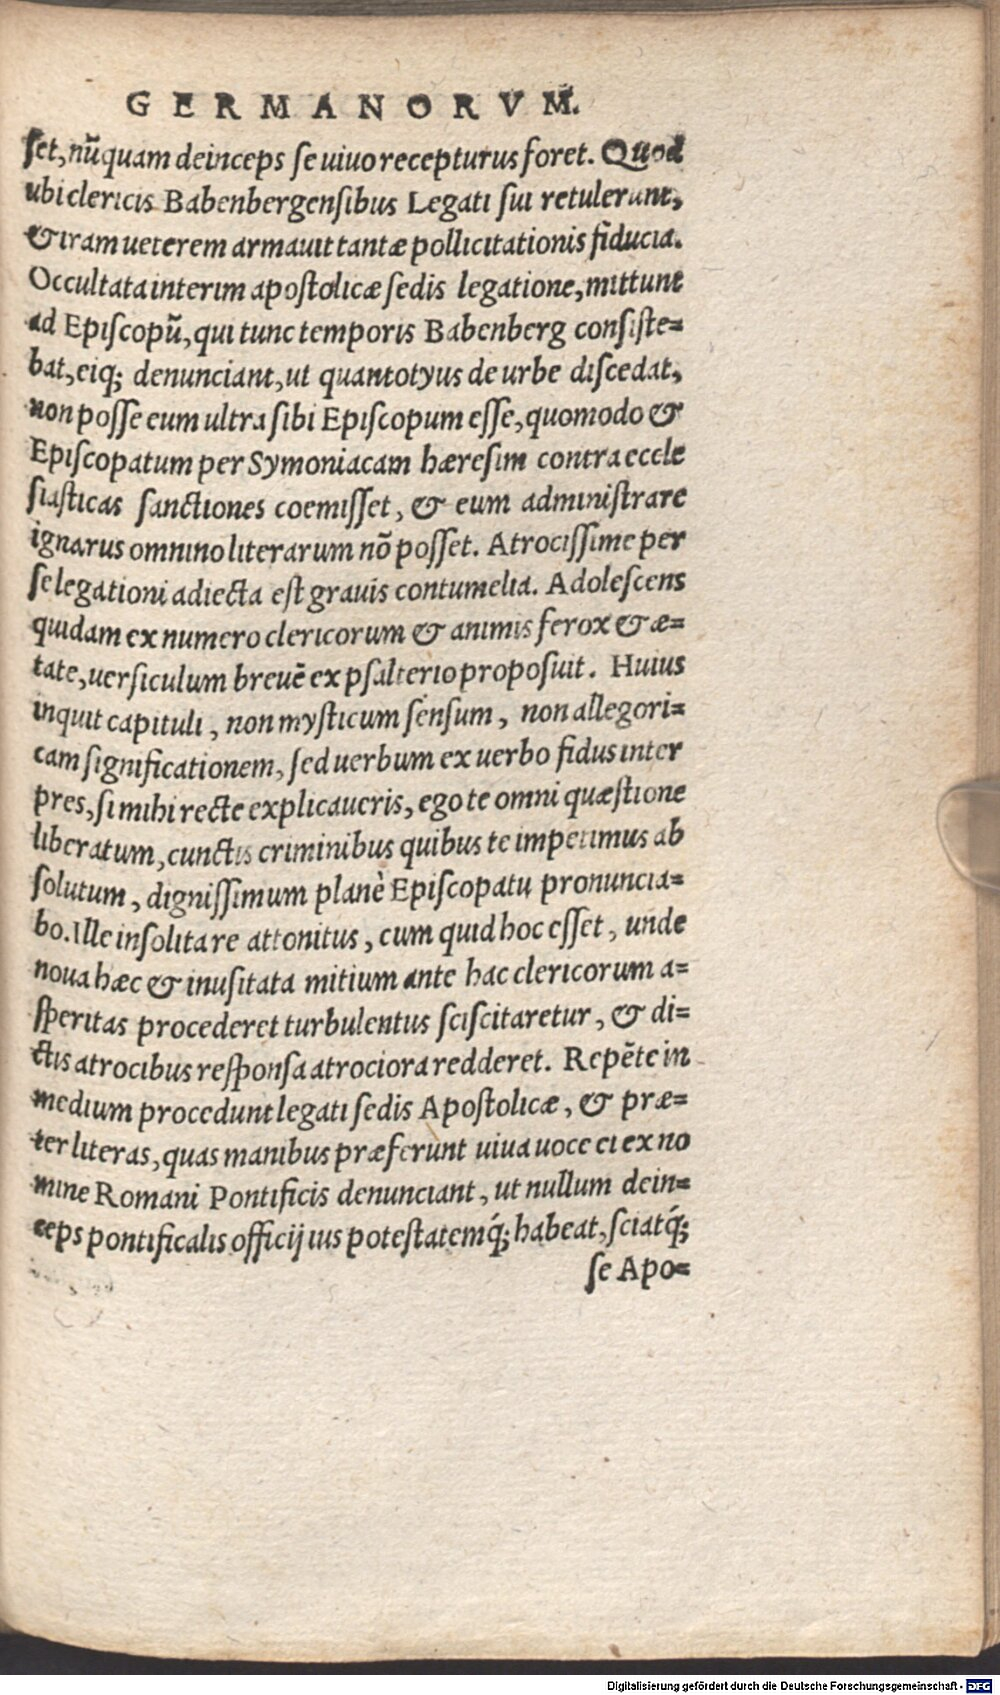 GERMANORVM.
ſet, nũquam deinceps ſe uiuo recepturus foret. Quod
ubi clericis Babenbergenſibus Legati ſui retulerunt,
& iram ueterem armauit tantæ pollicitationis fiducia.
Occultata interim apoſtolicæ ſedis legatione, mittunt
ad Epiſcopũ, qui tunc temporis Babenberg conſiſte=
bat, eiq; denunciant, ut quantotyus de urbe diſcedat,
non poſſe eum ultra ſibi Epiſcopum eſſe, quomodo &
Epiſcopatum per Symoniacam hæreſim contra eccle
ſiaſticas ſanctiones coemiſſet, & eum adminiſtrare
ignarus omnino literarum nõ poſſet. Atrociſſime per
ſe legationi adiecta eſt grauis contumelia. Adoleſcens
quidam ex numero clericorum & animis ferox & æ=
tate, uerſiculum breuẽ ex pſalterio propoſuit. Huius
inquit capituli, non myſticum ſenſum, non allegori=
cam ſignificationem, ſed uerbum ex uerbo fidus inter
pres, ſi mihi recte explicaueris, ego te omni quæſtione
liberatum, cunctis criminibus quibus te impetimus ab
ſolutum, digniſſimum planè Epiſcopatu pronuncia=
bo. Ille inſolita re attonitus, cum quid hoc eſſet, unde
noua hæc & inuſitata mitium ante hac clericorum a=
ſperitas procederet turbulentus ſciſcitaretur, & di=
ctis atrocibus reſponſa atrociora redderet. Repẽte in
medium procedunt legati ſedis Apoſtolicæ, & præ=
ter literas, quas manibus præferunt uiua uoce ei ex no
mine Romani Pontificis denunciant, ut nullum dein=
ceps pontificalis officij ius poteſtatemq́; habeat, ſciatq́;
ſe Apo=
Digitalisierung gefördert durch die Deutsche Forschungsgemeinschaft - DFG